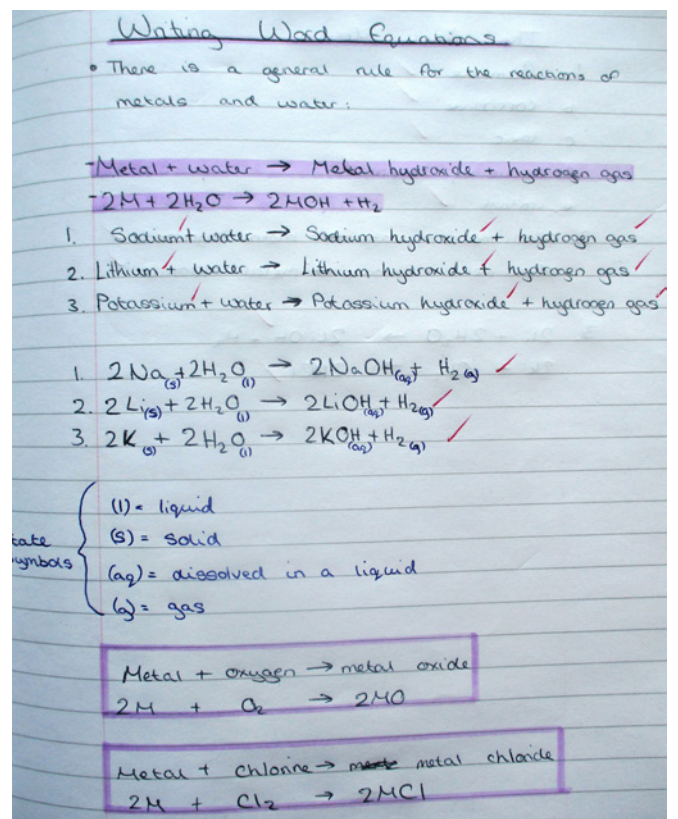 Writing Word Equations
• There is a general rule for the reactions of
metals and water:
-Metal + water → Metal hydroxide + hydrogen gas
-2M + 2H₂O → 2MOH + H₂
1. Sodium + water → Sodium hydroxide + hydrogen gas
2. Lithium + water → Lithium hydroxide + hydrogen gas
3. Potassium + water → Potassium hydroxide + hydrogen gas
1. 2Na(s) + 2H₂O(l) → 2NaOH(aq) + H₂(g)
2. 2Li(s) + 2H₂O(l) → 2LiOH(aq) + H₂(g)
3. 2K(s) + 2H₂O(l) → 2KOH(aq) + H₂(g)
tate
ymbols
(l) = liquid
(s) = solid
(aq) = dissolved in a liquid
(g) = gas
Metal + oxygen → metal oxide
2M + O₂ → 2MO
Metal + chlorine → metal chloride
2M + Cl₂ → 2MCl